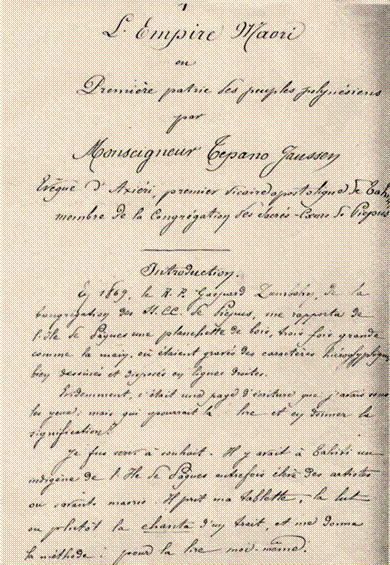 L'Empire Maori
ou
Première patrie des peuples polynésiens
par
Monseigneur Tepano Jaussen
Evêque d'Axieri, premier vicaire apostolique de Tahiti
membre de la Congrégation des Sacrés-Cœurs de Picpus
Introduction.
En 1869, le R. P. Gaspard Zumbohm, de la
Congrégation des SS. CC. de Picpus, me rapporta de
l'Ile de Pâques une planchette de bois, trois fois grande
comme la main, où étaient gravés des caractères hiéroglyphiques
bien dessinés et disposés en lignes droites.
Evidemment, c'était une page d'écriture que j'avais sous
les yeux; mais qui pourrait la lire et en donner la
signification?
Je fus servi à souhait. Il y avait à Tahiti un
indigène de l'Ile de Pâques autrefois élève des artistes
ou savants maoris. Il prit ma tablette, la lut
ou plutôt la chanta d'un trait, et me donna
la méthode pour la lire moi-même.